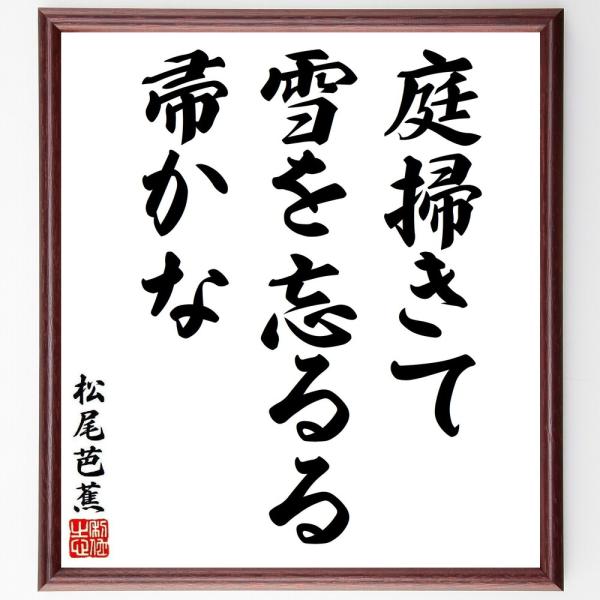 庭掃きて
雪を忘るる
帚かな
松尾芭蕉